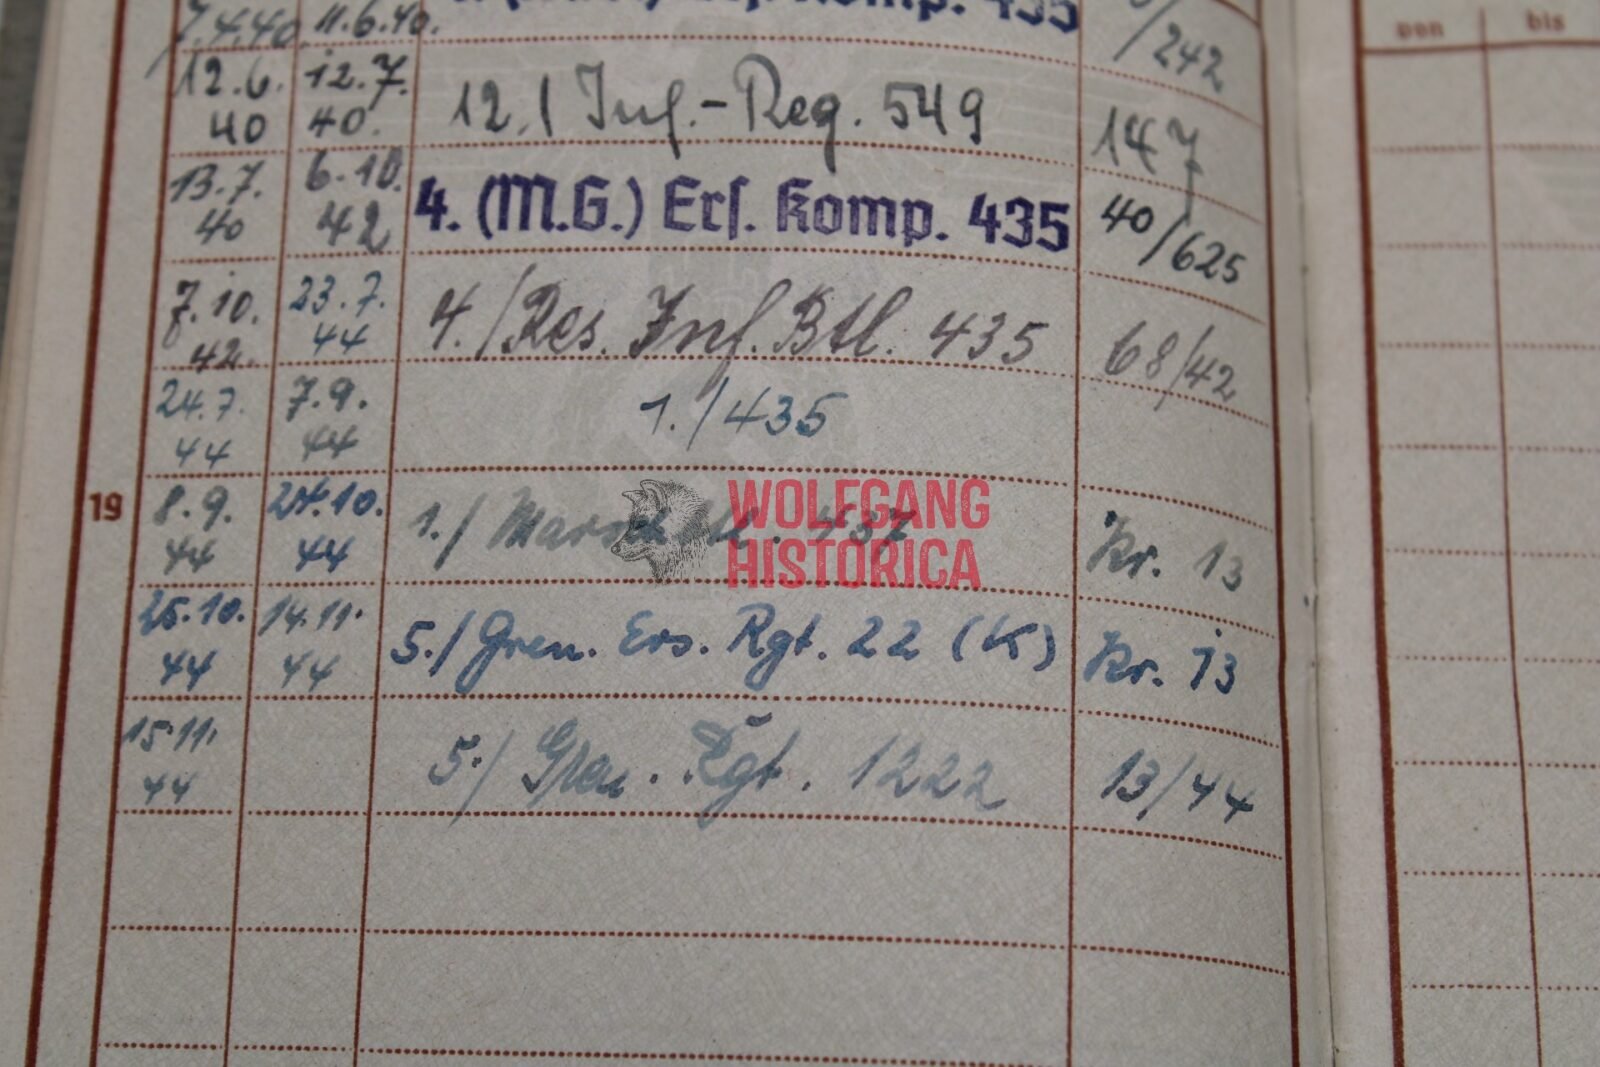 von bis
7.4.40. 11.6.40. Komp. 435 /242
12.6. 40 12.7. 40. 12./ Inf.-Reg. 549 147
13.7. 40 6.10. 42 4. (M.G.) Ers. Komp. 435 40/625
7.10. 42. 23.7. 44 4./Res. Inf. Btl. 435 68/42
24.7. 44 7.9. 44 1./435
19 8.9. 44 24.10. 44 1./ Marsch . 437 Kr. 13
25.10. 44 14.11. 44 5./ Gren. Ers. Rgt. 22 (K) Kr. 13
15.11. 44 5./ Gren. Rgt. 1222 13/44
WOLFGANG
HISTORICA